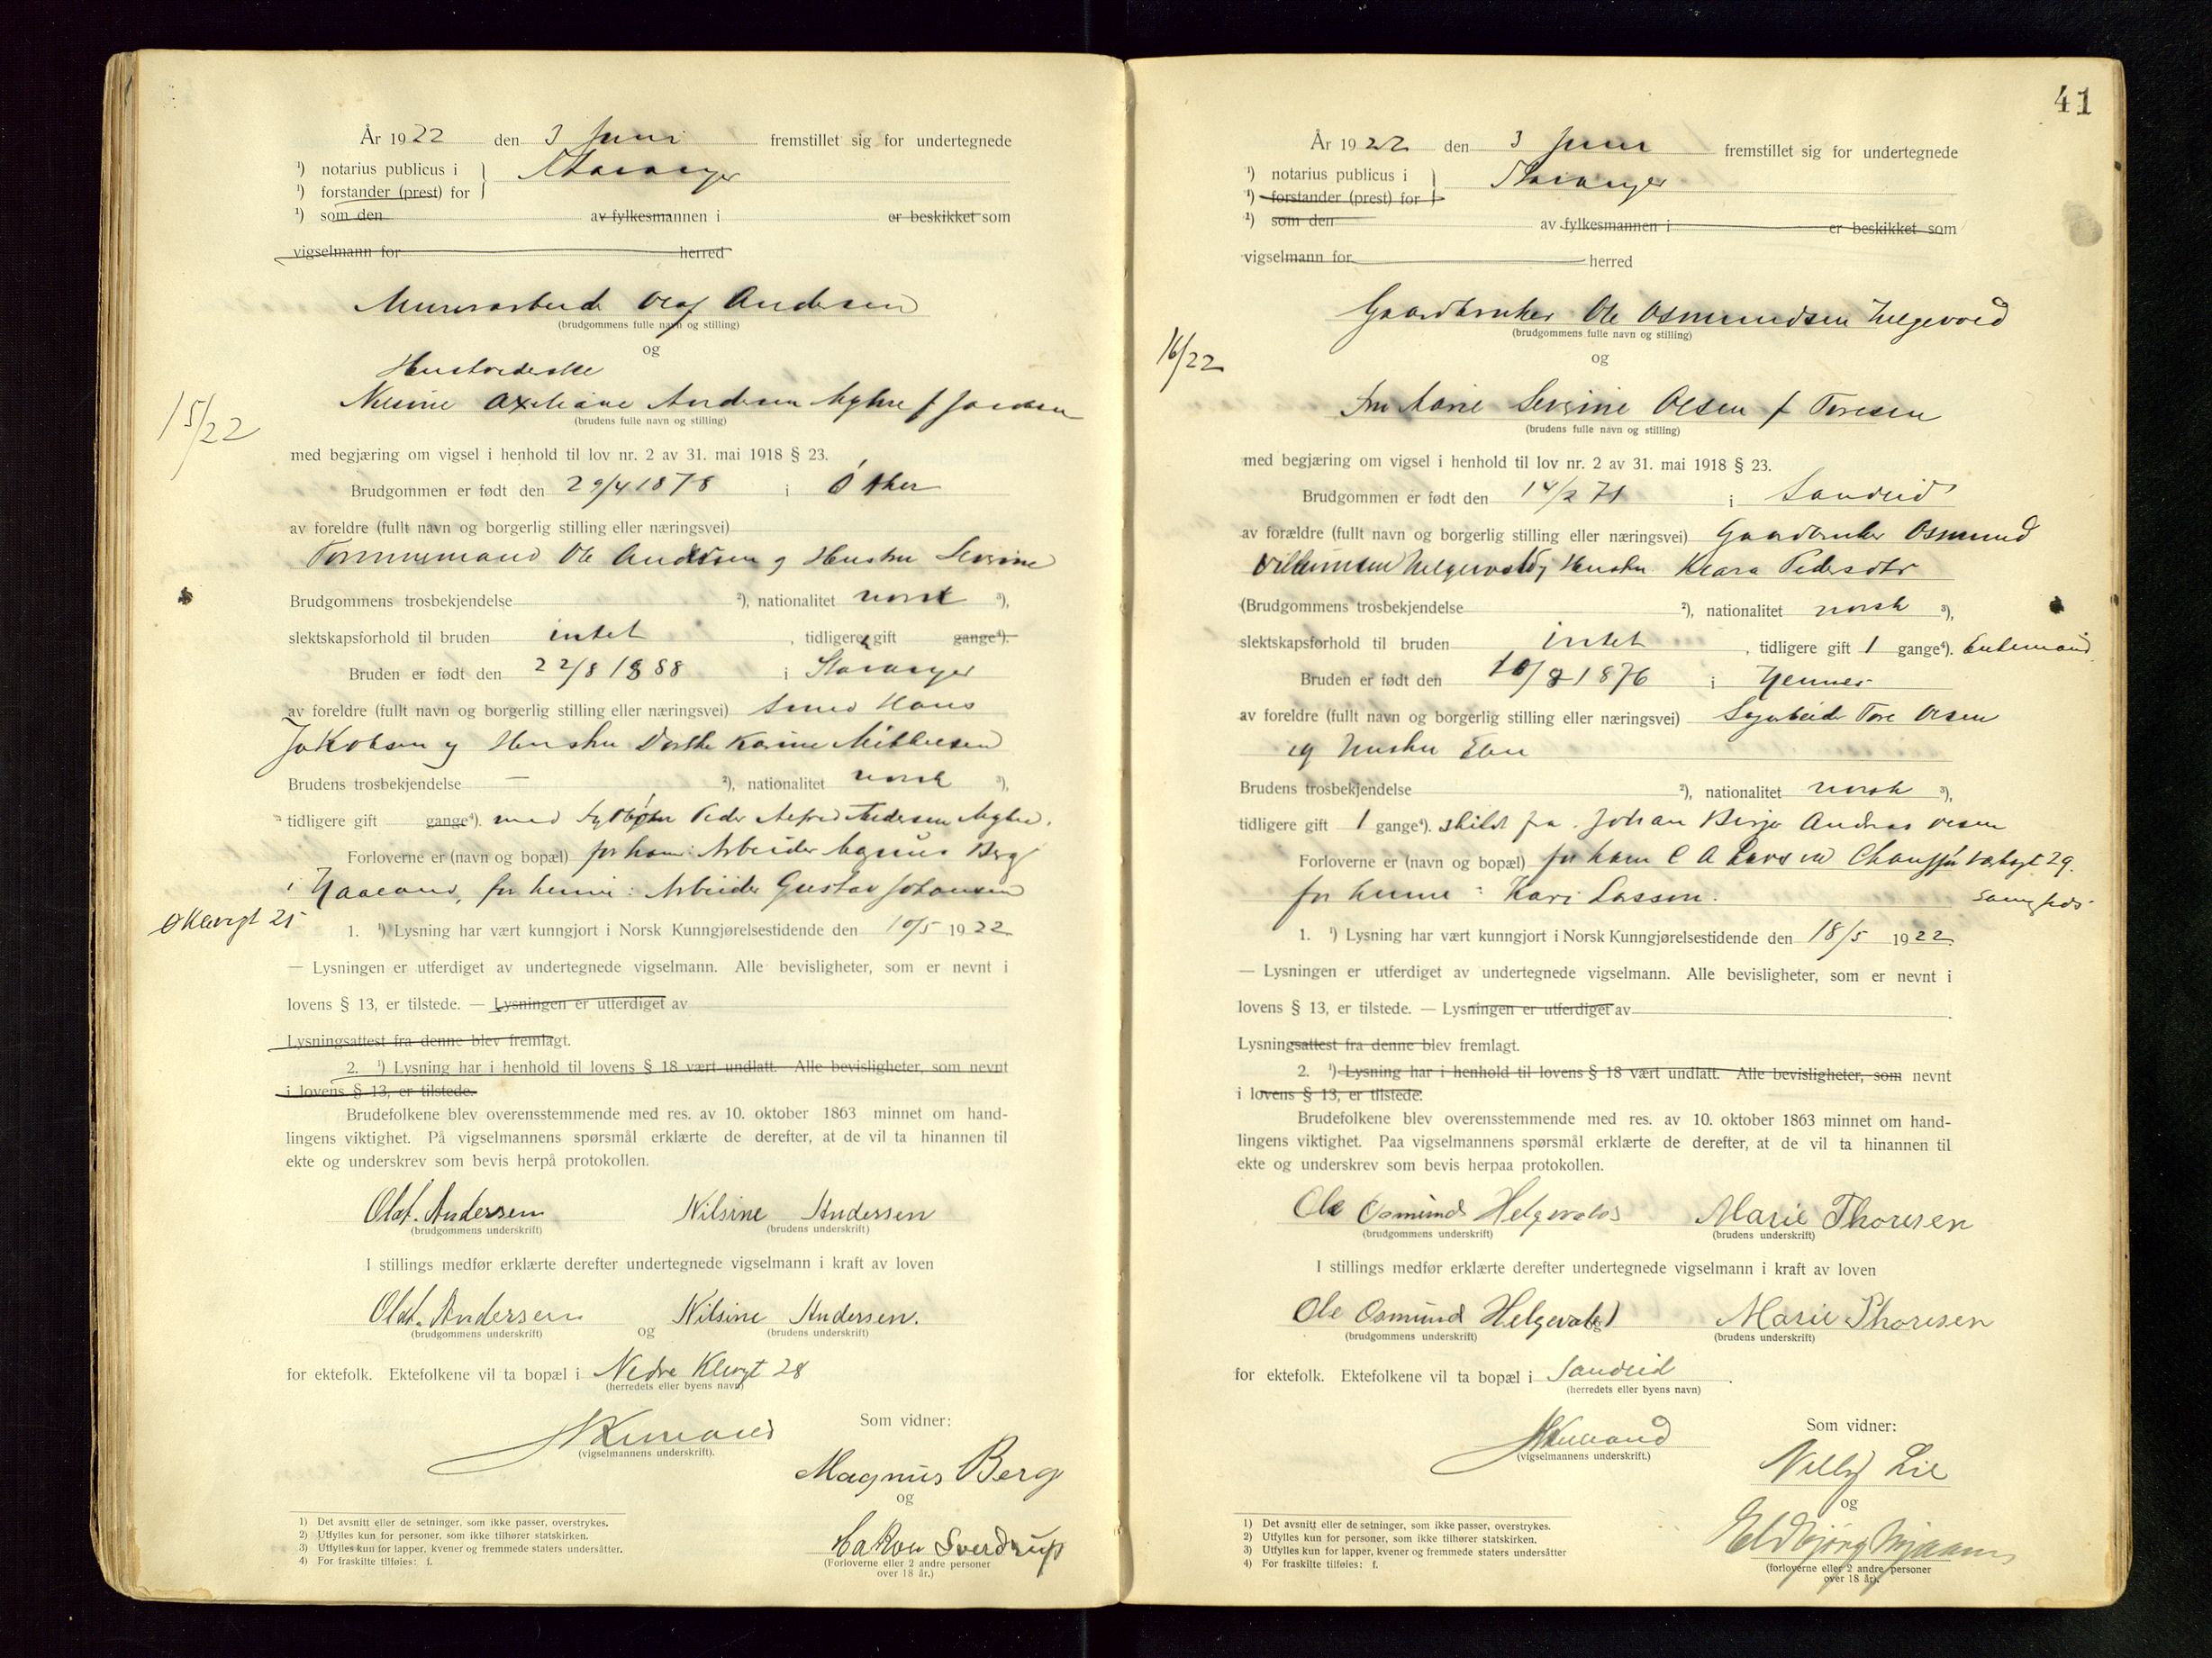 År 1922 den 3 Juni fremstillet sig for undertegnede
¹) notarius publicus i Stavanger
¹) forstander (prest) for
¹) som den av fylkesmannen i er beskikket som
vigselmann for herred
Murerarbeid Olaf Andersen
(brudgommens fulle navn og stilling)
og
Nilsine Andersen Myhre f
(brudens fulle navn og stilling)
15/22
med begjæring om vigsel i henhold til lov nr. 2 av 31. mai 1918 § 23.
Brudgommen er født den 29/4 1878 i
av foreldre (fullt navn og borgerlig stilling eller næringsvei)
Tømmermand Ole Andersen og Hustru Severine
Brudgommens trosbekjendelse ²), nationalitet norsk ³),
slektskapsforhold til bruden intet, tidligere gift gange⁴).
Bruden er født den 22/8 1888 i Stavanger
av foreldre (fullt navn og borgerlig stilling eller næringsvei) Smed Hans
Jakobsen og Hustru Dorthe Karine Mikkelsen
Brudens trosbekjendelse — ²), nationalitet norsk ³),
tidligere gift gange⁴). med Peder Alfred Andersen Myhre.
Forloverne er (navn og bopæl) for ham: Arbeider Magnus Berg
i Haaland, for henne: Arbeider Gustav Johansen
Ø Klevgt 25
1. ¹) Lysning har vært kunngjort i Norsk Kunngjørelsestidende den 10/5 1922
— Lysningen er utferdiget av undertegnede vigselmann. Alle bevisligheter, som er nevnt i
lovens § 13, er tilstede. — Lysningen er utferdiget av
Lysningsattest fra denne blev fremlagt.
2. ¹) Lysning har i henhold til lovens § 18 vært undlatt. Alle bevisligheter, som nevnt
i lovens § 13, er tilstede.
Brudefolkene blev overensstemmende med res. av 10. oktober 1863 minnet om hand-
lingens viktighet. På vigselmannens spørsmål erklærte de derefter, at de vil ta hinannen til
ekte og underskrev som bevis herpå protokollen.
Olaf. Andersen Nilsine Andersen
(brudgommens underskrift) (brudens underskrift)
I stillings medfør erklærte derefter undertegnede vigselmann i kraft av loven
Olaf. Andersen og Nilsine Andersen.
(brudgommens underskrift) (brudens underskrift)
for ektefolk. Ektefolkene vil ta bopæl i Nedre Klevgt 28
(herredets eller byens navn)
Som vidner:
(vigselmannens underskrift).
Magnus Berg
og
Hakon Sverdrup
(Forloverne eller 2 andre personer
over 18 år.)
1) Det avsnitt eller de setninger, som ikke passer, overstrykes.
2) Utfylles kun for personer, som ikke tilhører statskirken.
3) Utfylles kun for lapper, kvener og fremmede staters undersåtter.
4) For fraskilte tilføies: f.
41
År 1922 den 3 Juni fremstillet sig for undertegnede
¹) notarius publicus i Stavanger
¹) forstander (prest) for
¹) som den av fylkesmannen i er beskikket som
vigselmann for herred
Gaardbruker Ole Osmundsen Helgevold
(brudgommens fulle navn og stilling)
16/22
og
Fru Marie Severine Olsen f Toresen
(brudens fulle navn og stilling)
med begjæring om vigsel i henhold til lov nr. 2 av 31. mai 1918 § 23.
Brudgommen er født den 14/2 71 i Sandeid
av forældre (fullt navn og borgerlig stilling eller næringsvei) Gaardbruker Osmund
Villumsen Helgevold og Hustru Klara Pedersdtr
(Brudgommens trosbekjendelse ²), nationalitet norsk ³),
slektskapsforhold til bruden intet, tidligere gift 1 gange⁴). Enkemand
Bruden er født den 10/8 1876 i
av foreldre (fullt navn og borgerlig stilling eller næringsvei) Tore Olsen
og Hustru Elen
Brudens trosbekjendelse ²), nationalitet norsk ³),
tidligere gift 1 gange⁴). skilt fra Johan Andreas Olsen
Forloverne er (navn og bopæl) for ham C A 29.
for henne: Kari Larsson.
1. ¹) Lysning har vært kunngjort i Norsk Kunngjørelsestidende den 18/5 1922
— Lysningen er utferdiget av undertegnede vigselmann. Alle bevisligheter, som er nevnt i
lovens § 13, er tilstede. — Lysningen er utferdiget av
Lysningsattest fra denne blev fremlagt.
2. ¹) Lysning har i henhold til lovens § 18 vært undlatt. Alle bevisligheter, som nevnt
i lovens § 13, er tilstede.
Brudefolkene blev overensstemmende med res. av 10. oktober 1863 minnet om hand-
lingens viktighet. Paa vigselmannens spørsmål erklærte de derefter, at de vil ta hinannen til
ekte og underskrev som bevis herpaa protokollen.
Ole Osmund Helgevold Marie Thoresen
(brudgommens underskrift) (brudens underskrift)
I stillings medfør erklærte derefter undertegnede vigselmann i kraft av loven
Ole Osmund Helgevold og Marie Thoresen
(brudgommens underskrift) (brudens underskrift)
for ektefolk. Ektefolkene vil ta bopæl i Sandeid.
(herredets eller byens navn)
Som vidner:
(vigselmannens underskrift.)
Lie
og
Eldbjørg
(forloverne eller 2 andre personer
over 18 år).
1) Det avsnitt eller de setninger, som ikke passer, overstrykes.
2) Utfylles kun for personer, som ikke tilhører statskirken.
3) Utfylles kun for lapper, kvener og fremmede staters undersåtter
4) For fraskilte tilføies: f.